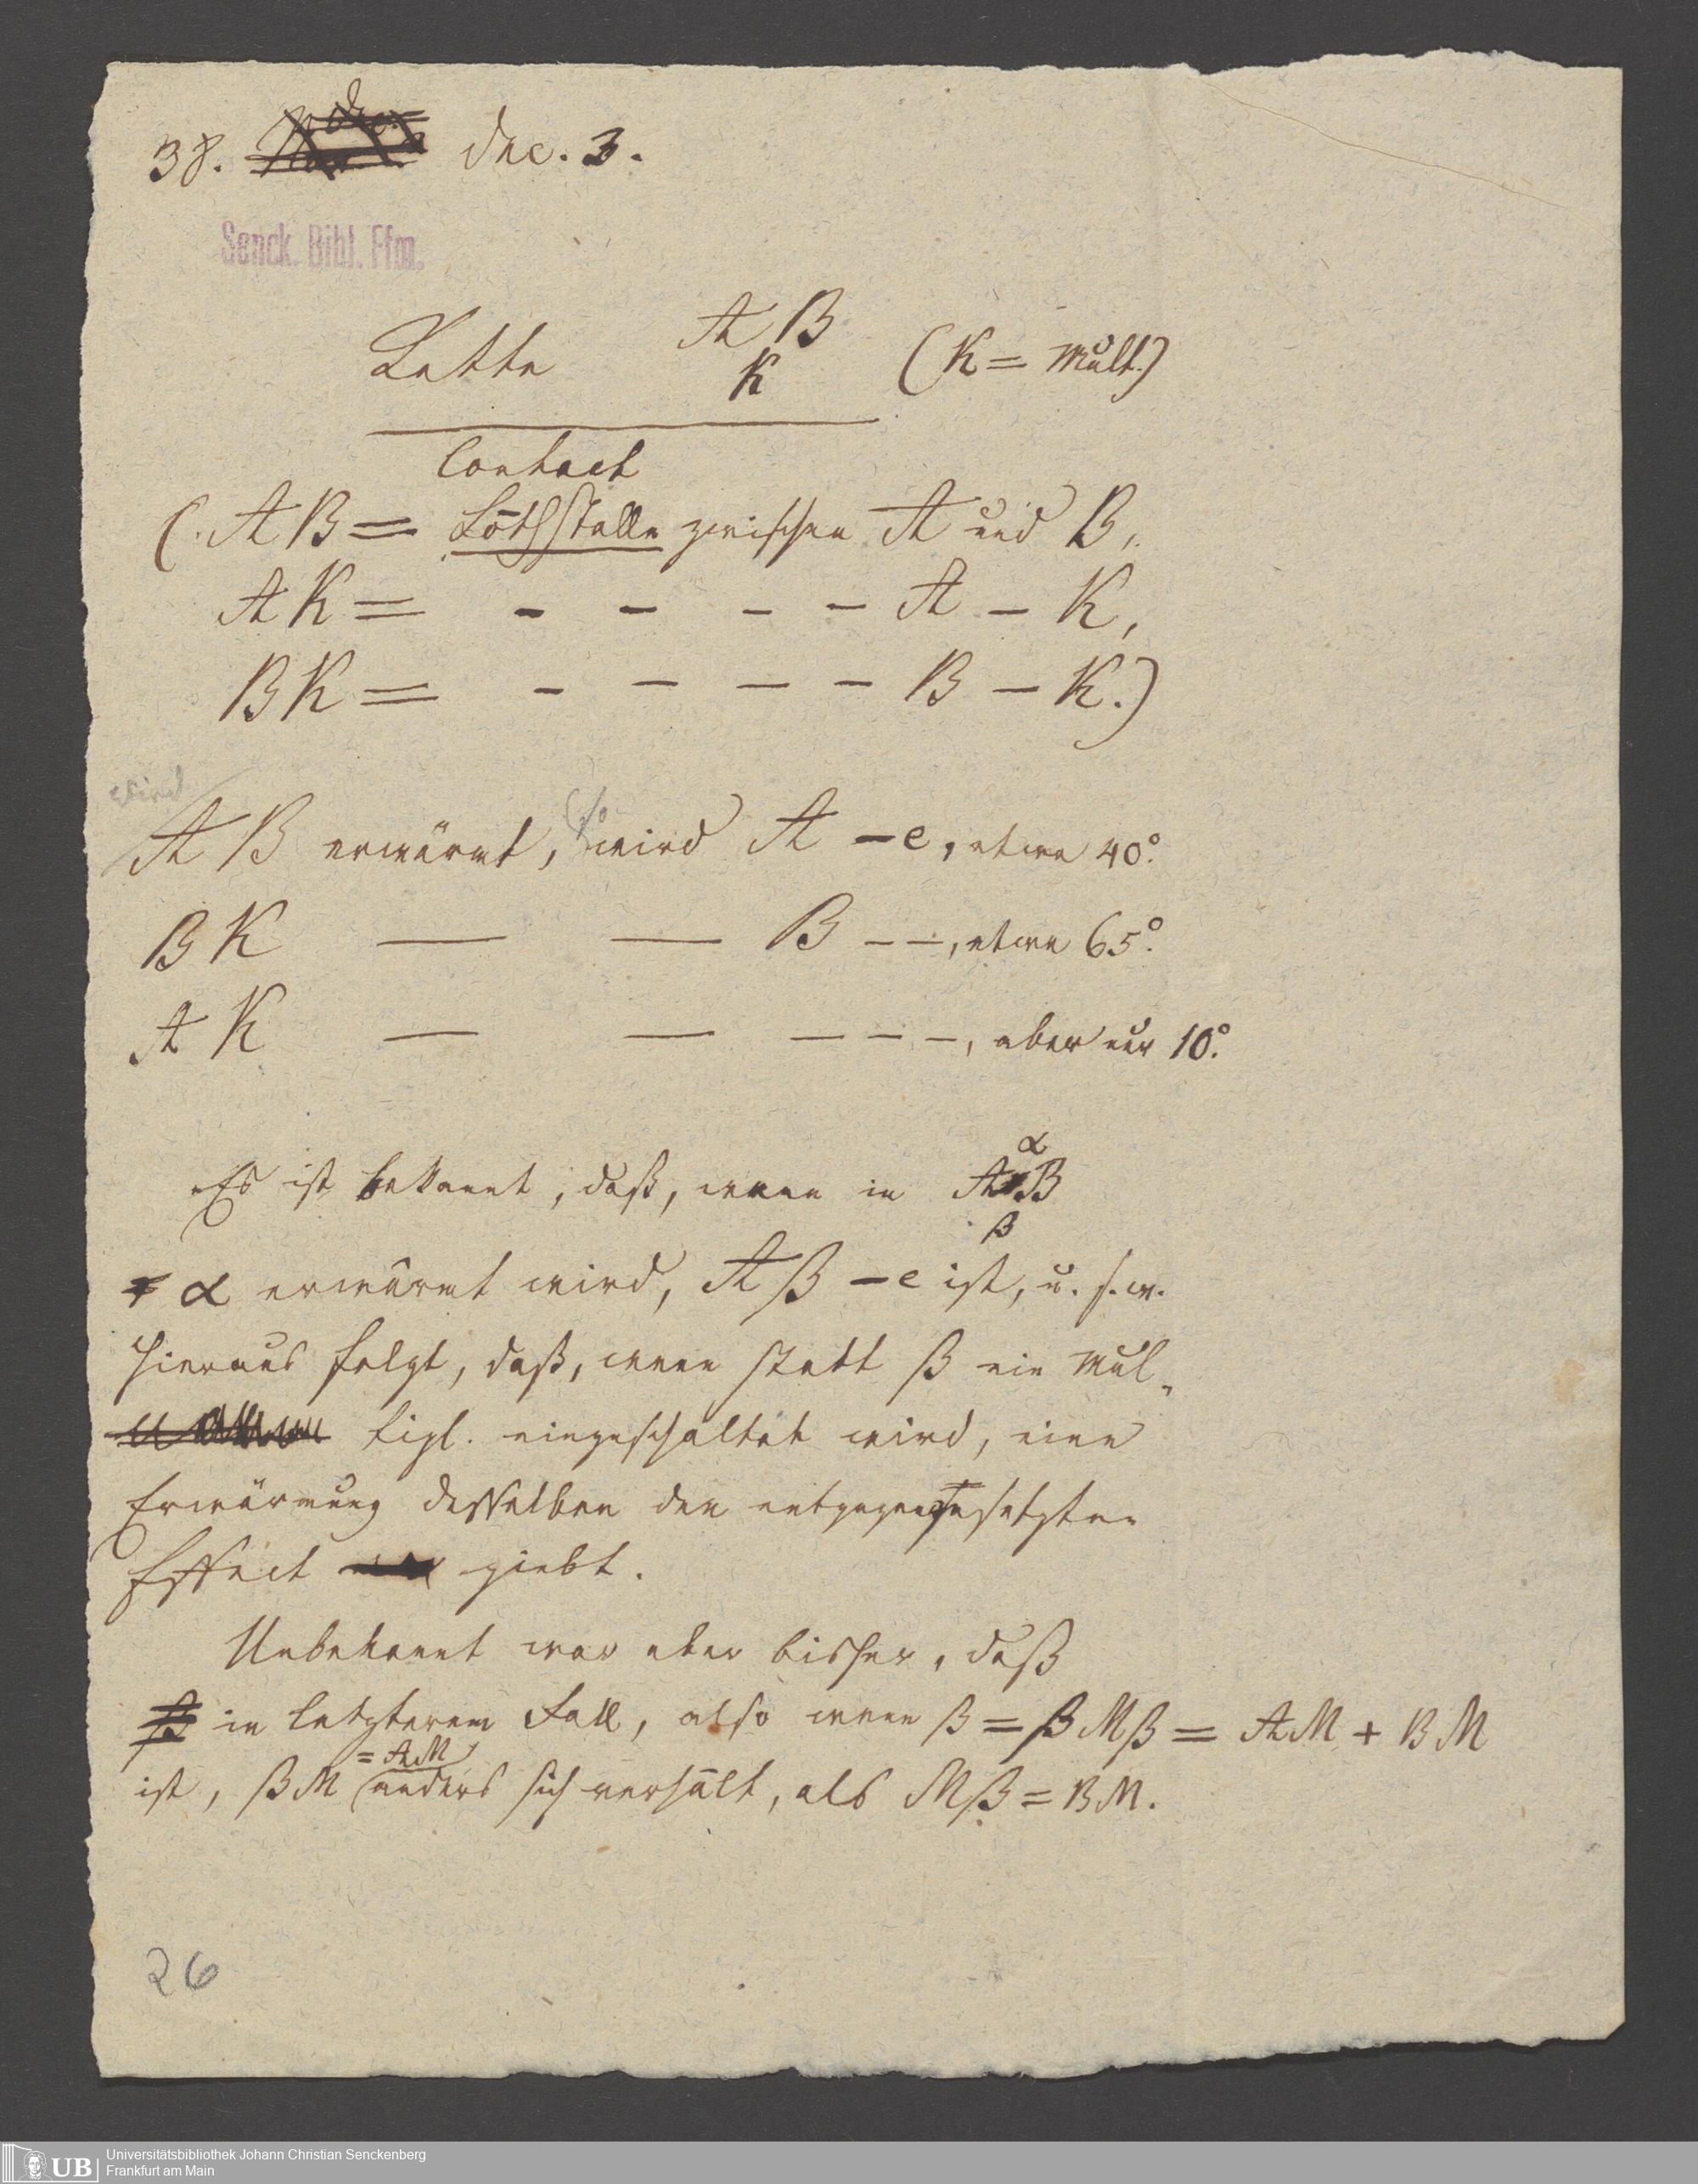 38. Dec. 3.
Senck. Bibl. Ffm.
Kette A B (K = Mult.)
K
Contact
(AB = Löthstelle zwischen A und B,
AK = - - - - A - K,
BK = - - - - B - K.)
wird
so
AB erwärmt, wird A -e, etwa 40°.
BK — — B - -, etwa 65°.
AK — — - - -, aber nur 10°.
α
Es ist bekannt, daß, wenn in A B
β
α erwärmt wird, Aβ -e ist, u. s. w.
Hieraus folgt, daß, wenn statt β ein Mul-
tipl. eingeschaltet wird, eine
Erwärmung desselben den entgegengesetzten
Effect giebt.
Unbekannt war aber bisher, daß
in letzterem Fall, also wenn β = βMβ = AM + BM
= AM
ist, βM anders sich verhält, als Mβ = BM.
26
UB Universitätsbibliothek Johann Christian Senckenberg
Frankfurt am Main